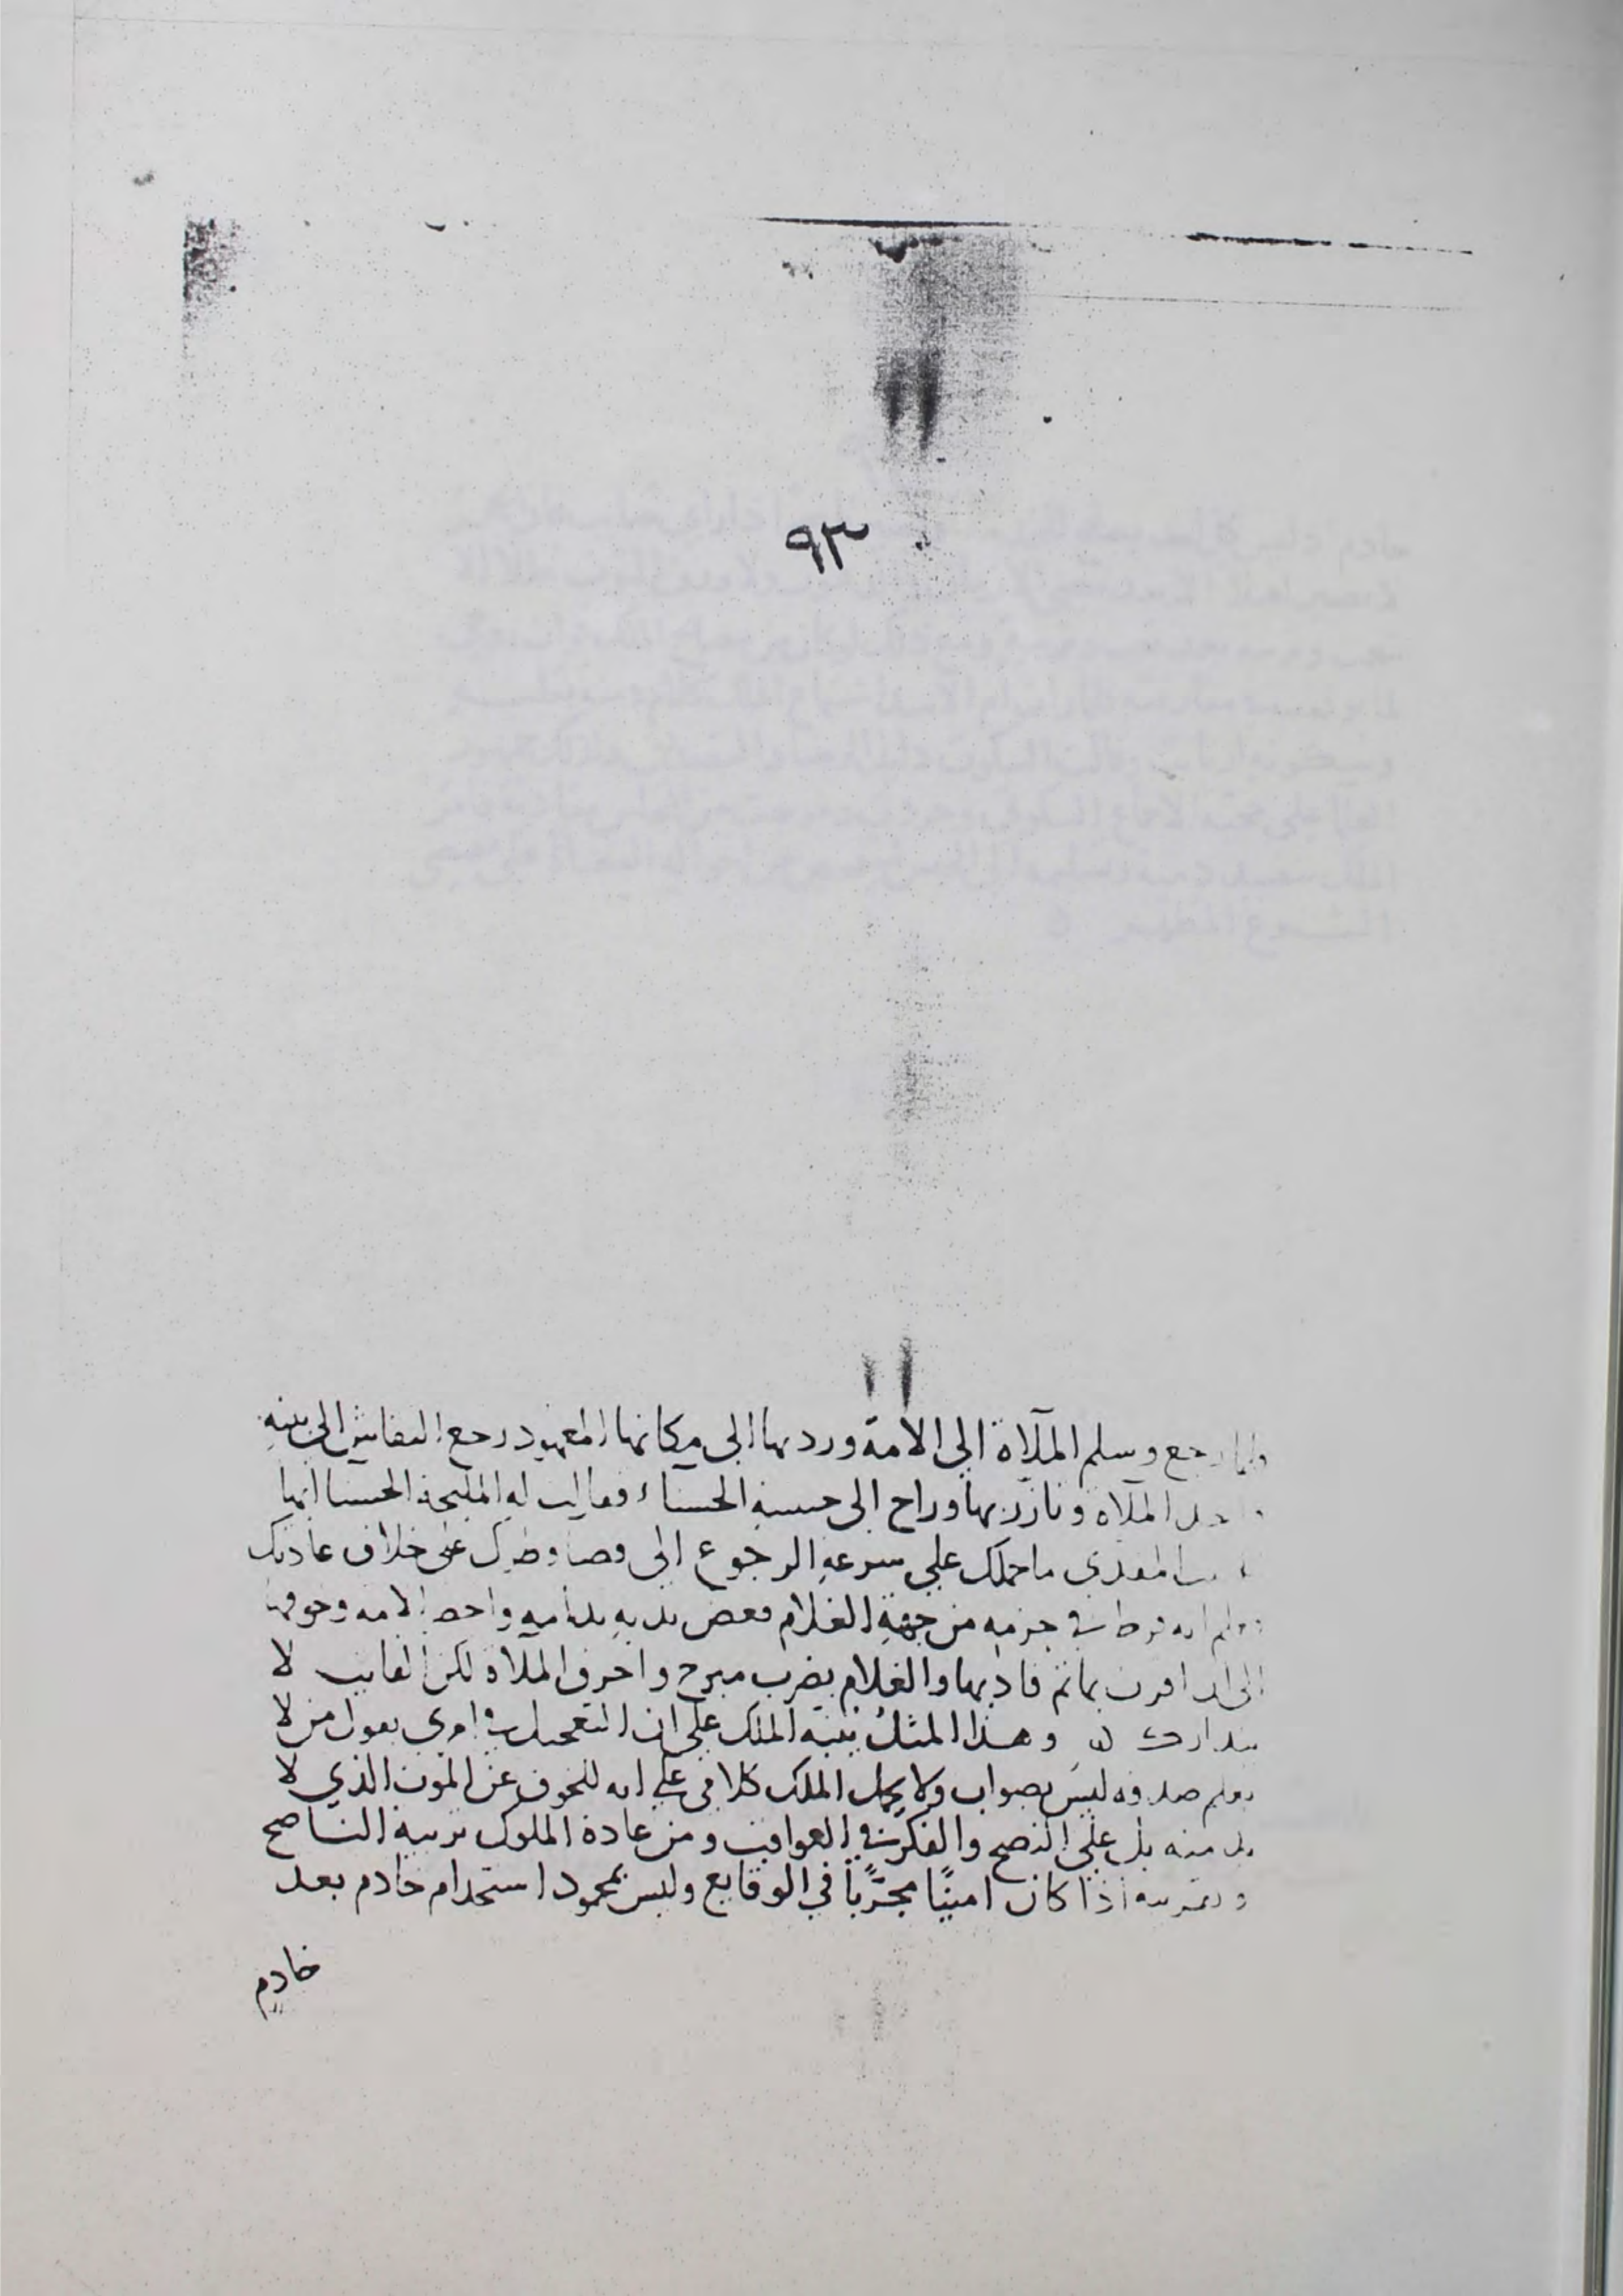 ٩٣
ولما رجع وسلم الملآة الى الامة وردتها الى مكانها المعهود رجع النقاش الى بيته
الملآة وتازر بها وراح الى حبيبته الحسناء فقالت له المليحة الحسنا ايها
ما حملك على سرعة الرجوع الى قضا وطرك على خلاف عادتك
فرط في جزمه من جهة الغلام فعض يديه ندامة واحضر الامة وخوفها
الى ان اقرت بما تم فادبها والغلام بضرب مبرح واحرق الملآة لكن الفايت لا
يتدارك ن وهذا المثل ينبه الملك على ان التعجيل في امري بقول من لا
يعلم صدقه ليس بصواب ولا يحمل الملك كلامي على انه للخوف عن الموت الذي لا
بد منه بل على النصح والفكر في العواقب ومن عادة الملوك تربية الناصح
اذا كان امينًا مجرّبًا في الوقايع وليس بمحمود استخدام خادم بعد
خادم